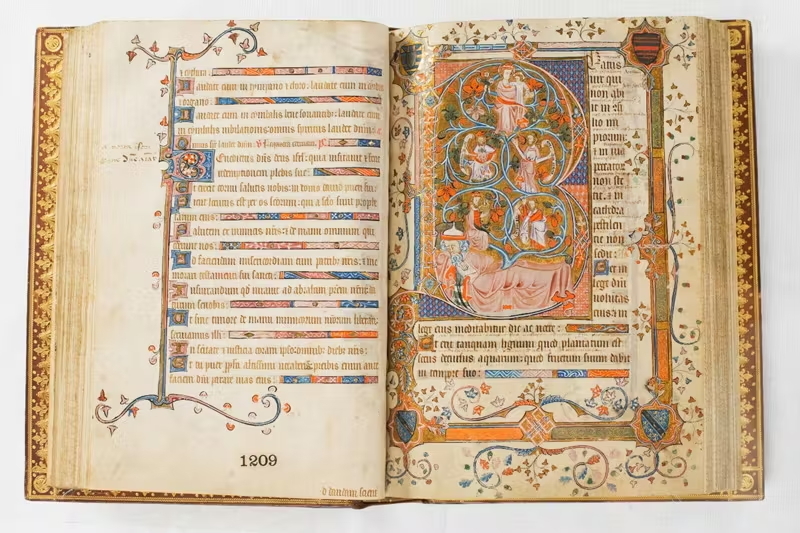 ⁊ cythara :
Laudate eum in tympano ⁊ choro : laudate eum in cordis
⁊ organo :
Laudate eum in cymbalis bene sonantib; : laudate eum
in cymbalis iubilationis : omnis spiritus laudet dnm
Benedictus dns deus isrl : quia uisitauit ⁊ fecit
redempcionem plebis sue :
Et erexit cornu salutis nobis : in domo dauid pueri sui :
Sicut locutus est per os scorum : qui a sclo sunt prophe
tarum eius :
Salutem ex inimicis nris : ⁊ de manu omnium qui
oderunt nos :
Ad faciendam misericordiam cum patrib; nris : ⁊ me
morari testamenti sui sancti :
Iusiurandum qd iurauit ad abraham prem nrm :
daturum se nobis :
Ut sine timore de manu inimicorum nrorum liberati :
seruiamus illi :
In scitate ⁊ iusticia coram ipso : omnib; dieb; nris :
Et tu puer ppha altissimi uocaberis : preibis enim ante
faciem dni parare uias eius :
1209
Beatus
uir qui
non abi
it in
lio im
piorum :
⁊ in uia
peccator
non ste
tit : ⁊ in
cathedra
pestilen
tie non
sedit :
Set in
lege dni
uoluntas
eius : ⁊ in
lege eius meditabitur die ac nocte :
Et erit tanquam lignum quod plantatum est
secus decursus aquarum : quod fructum suum dabit
in tempore suo :